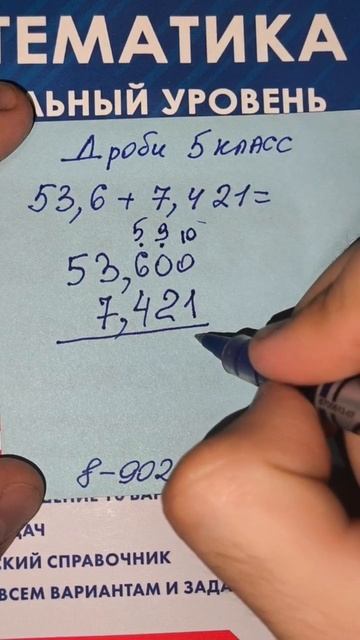 ТЕМАТИКА
ЛЬНЫЙ УРОВЕНЬ
Дроби 5 класс
53,6 + 7,421=
5 9 10
53,600
7,421
8-902
ДАЧ
СКИЙ СПРАВОЧНИК
ВСЕМ ВАРИАНТАМ И ЗАДА